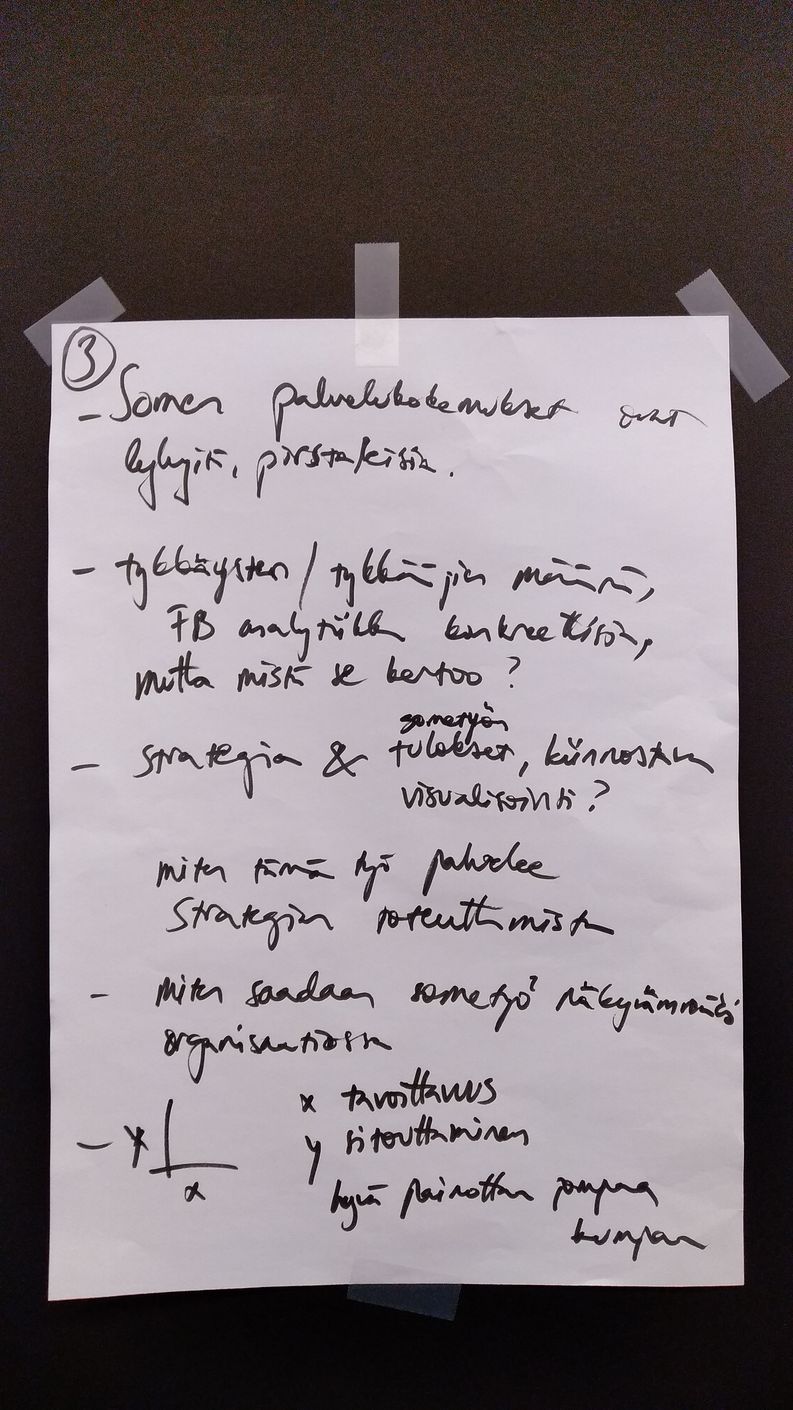 3
- Somen palvelukokemukset ovat
lyhyitä, pirstaleisia.
- tykkäysten / tykkääjien määrä,
FB analytiikka konkreettisia,
mutta mistä se kertoo?
sometyön
- strategia & tulokset, kiinnostava
visualisointi?
miten tämä työ palvelee
strategian toteuttamista
- miten saadaan sometyö näkyvämmäksi
organisaatiossa
x tavoittavuus
- y
y sitouttaminen
x
hyvä painottaa jompaa
kumpaa